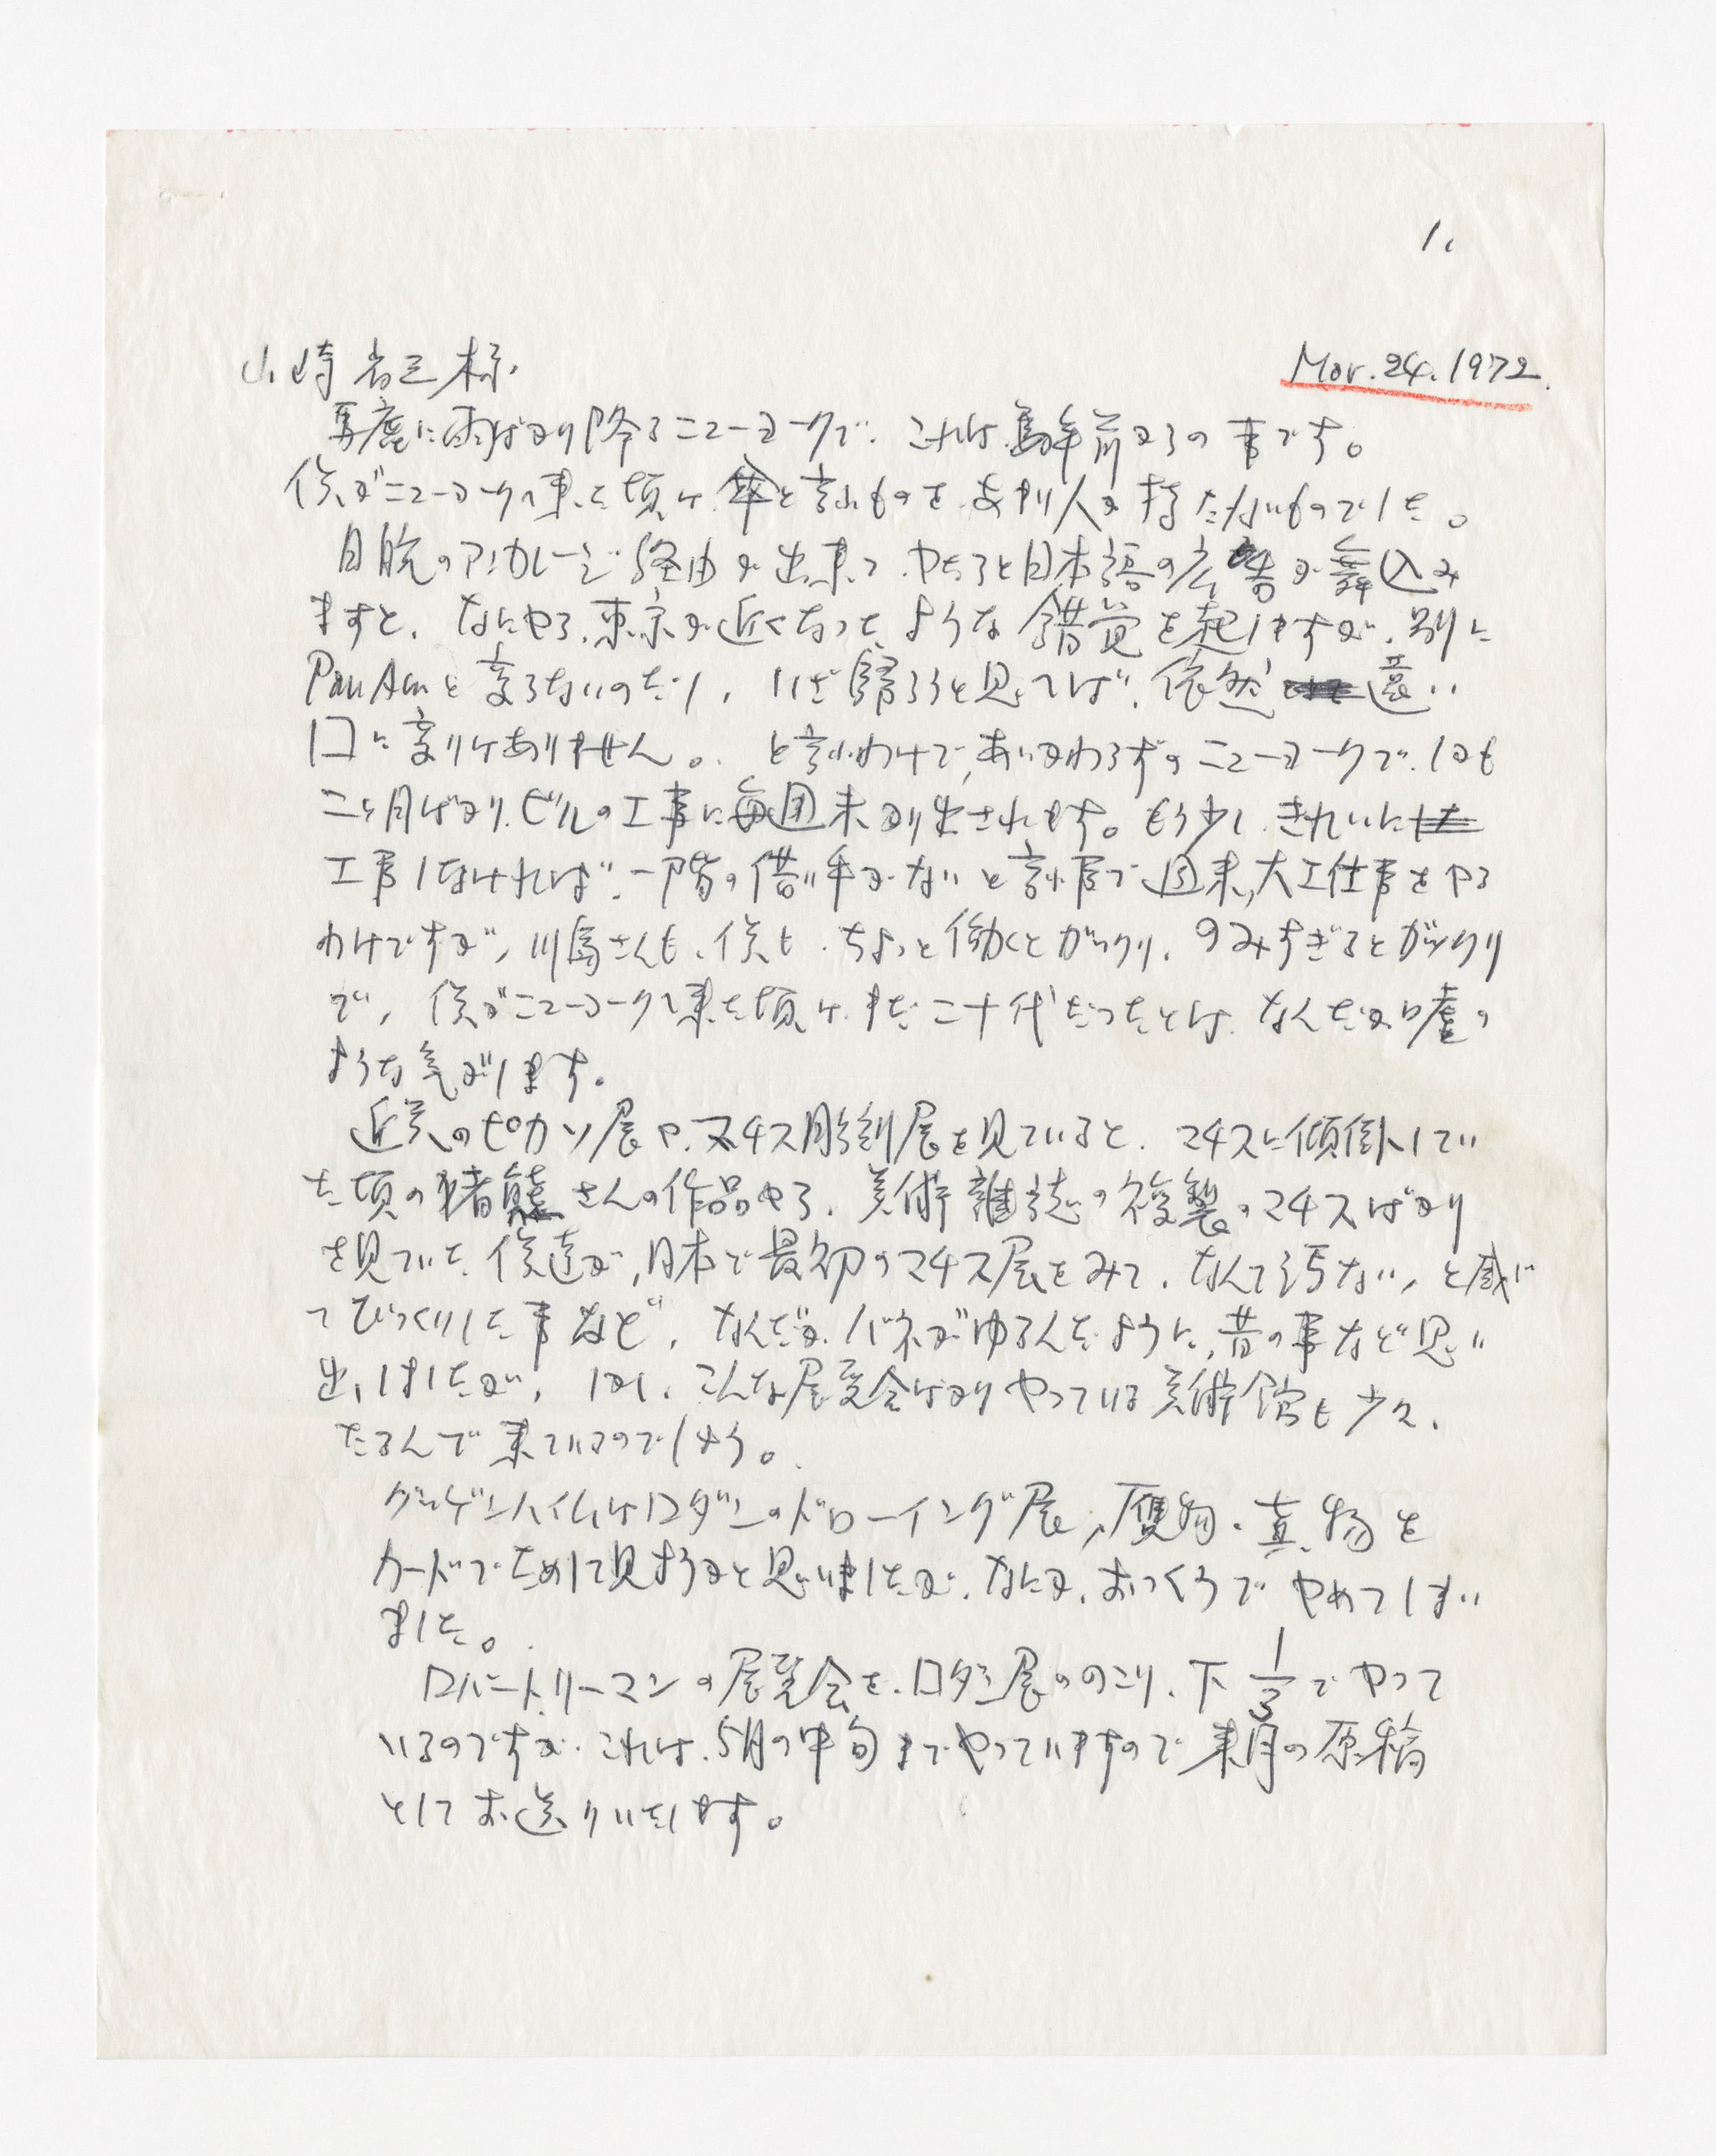 1.
山崎省三様
Mar. 24. 1972.
馬鹿に雨ばかり降るニューヨークで、これは数年前からの事です。
僕がニューヨークへ来た頃は、傘と言ふものを、あまり人が持たないものでした。
日航のアンカレージ経由が出来て、やたらと日本語の広告が舞込み
ますと、なにやら、東京が近くなったような錯覚を起しますが、別に
Pan Amと変らないのだし、いざ帰ろうと思へば、依然遠い
口に変りはありません。と言ふわけで、あいかわらずのニューヨークで、しかも
二ヶ月ばかり、ビルの工事に毎週末かり出されます。もう少し、きれいに
工事しなければ、一階の借り手がないと言ふ事で週末、大工仕事をやる
わけですが、川島さんも、僕も、ちょっと働くとガックリ、のみすぎるとガックリ
で、僕がニューヨークへ来た頃は、まだ二十代だったとは、なんだか嘘の
ような気がします。
近頃のピカソ展や、マチス彫刻展を見ていると、マチスに傾倒してい
た頃の猪熊さんの作品やら、美術雑誌の複製のマチスばかり
を見ていた僕達が、日本で最初のマチス展をみて、なんて汚ない、と感じ
てびっくりした事など、なんだか、バネがゆるんだように、昔の事など思い
出しましたが、しかし、こんな展覧会ばかりやっている美術館も少々、
たるんで来ているのでしょう。
グッゲンハイムはロダンのドローイング展、贋物、真物を
カードでためして見ようかと思いましたが、なにか、おっくうでやめてしまい
ました。
ロバート・リーマンの展覧会を、ロダン展ののこり、下1/3でやって
いるのですが、これは、5月の中旬までやっていますので来月の原稿
としてお送りいたします。